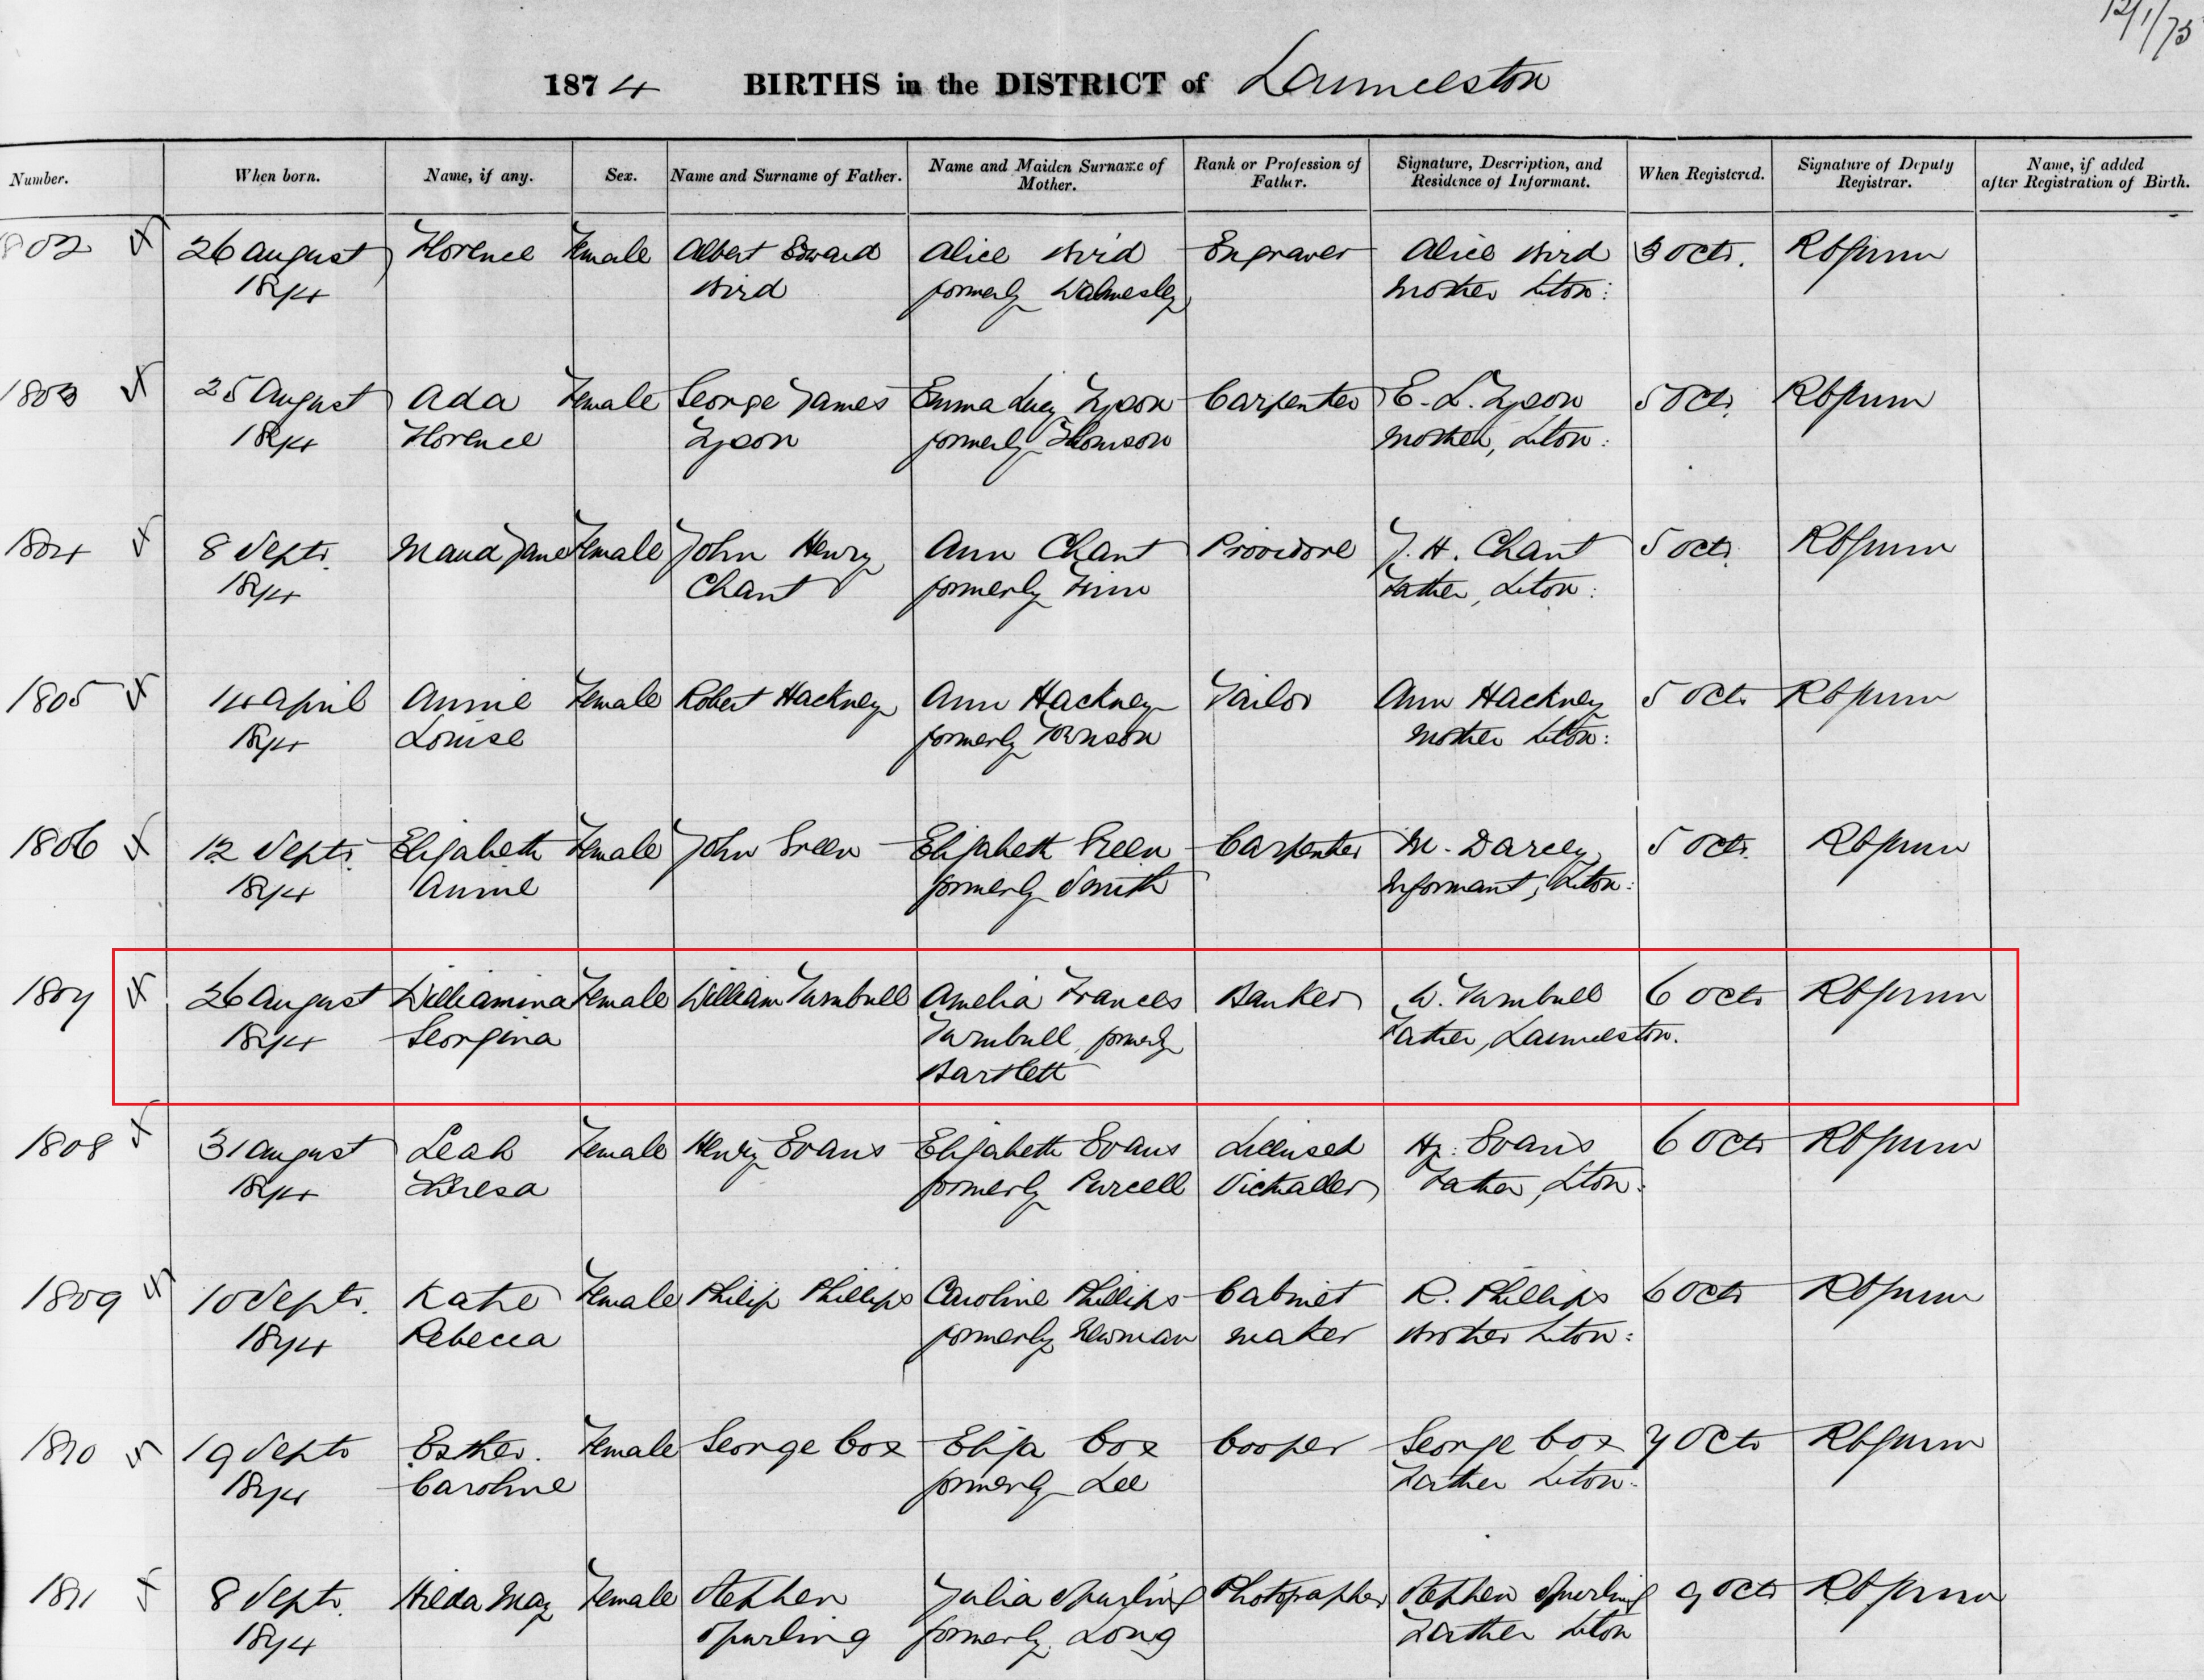 12/1/75
1874 BIRTHS in the DISTRICT of Launceston
Number. When born. Name, if any. Sex. Name and Surname of Father. Name and Maiden Surname of Mother. Rank or Profession of Father. Signature, Description, and Residence of Informant. When Registered. Signature of Deputy Registrar. Name, if added after Registration of Birth.
1802 26 August Florence Female Albert Edward Alice Bird Engraver Alice Bird 3 Octr.
1874 Bird formerly Walmesley Mother Lton:
1803 25 August Ada Female George James Emma Lucy Tyson Carpenter E. L. Tyson 5 Octr.
1874 Florence Tyson formerly Thomson Mother, Lton:
1804 8 Septr. Maud Jane Female John Henry Ann Chant Providore J. H. Chant 5 Octr.
1874 Chant formerly Father, Lton:
1805 14 April Annie Female Robert Hackney Ann Hackney Tailor Ann Hackney 5 Octr
1874 Louise formerly Mother Lton:
1806 12 Septr. Elizabeth Female John Green Elizabeth Green Carpenter M. Darcey 5 Octr.
1874 Annie formerly Smith Informant, Lton:
1807 26 August Williamina Female William Turnbull Amelia Frances Banker W. Turnbull 6 Octr
1874 Georgina Turnbull, formerly Father, Launceston.
Bartlett
1808 31 August Leah Female Henry Evans Elizabeth Evans Licensed Hy: Evans 6 Octr
1874 Theresa formerly Purcell Victualler Father, Lton:
1809 10 Septr. Kate Female Philip Phillips Caroline Phillips Cabinet R. Phillips 6 Octr
1874 Rebecca formerly Newman maker Brother Lton:
1810 19 Septr Esther Female George Cox Eliza Cox Cooper George Cox 7 Octr
1874 Caroline formerly Lee Father Lton:
1811 8 Septr. Hilda May Female Stephen Julia Spurling Photographer Stephen Spurling 9 Octr
1874 Spurling formerly Long Father Lton